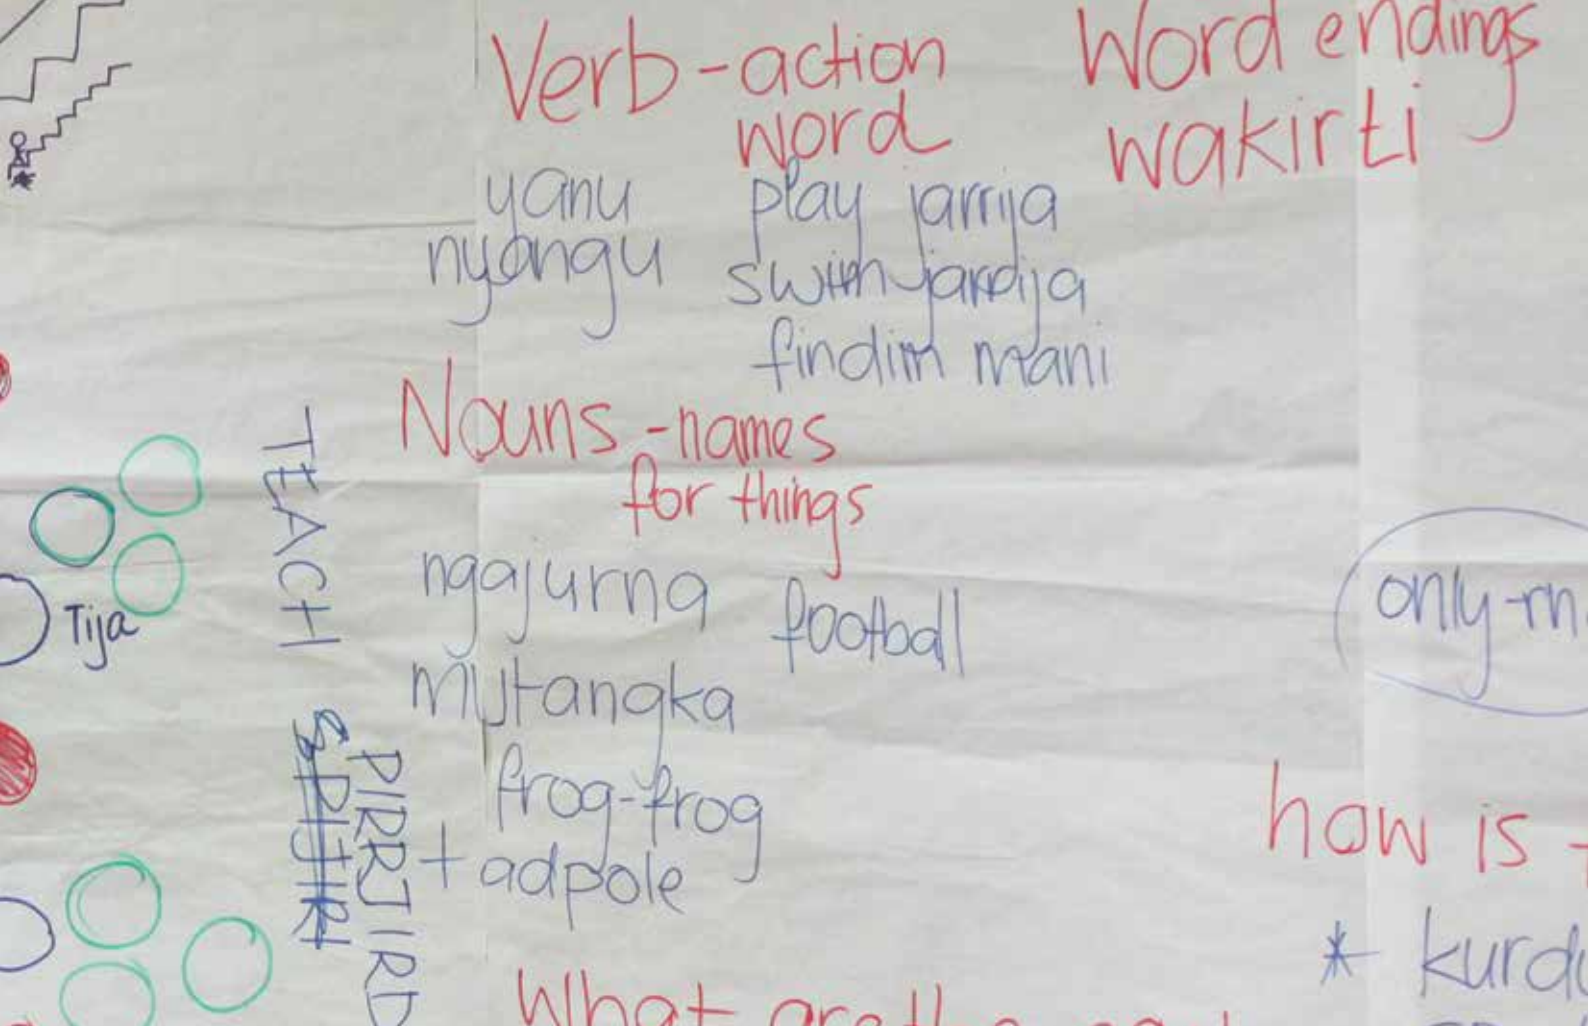 Verb-action
word
Word endings
wakirti
yanu
nyangu
play jarrija
swim jarrija
findim mani
Nouns-names
for things
ngajurna
football
frog-frog
tadpole
Tija
TEACH
only-rn
how is
* kurdu
What are the